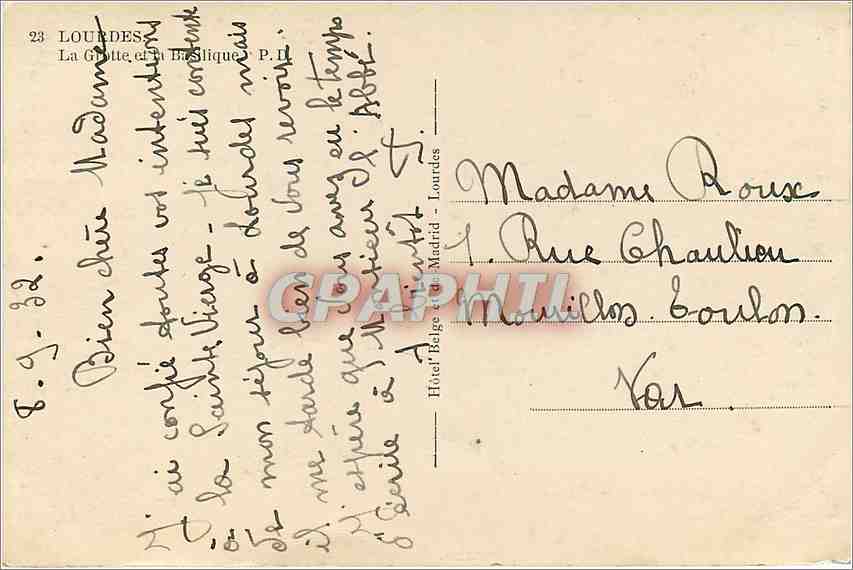 23 LOURDES.
La Grotte et la Basilique P. D.
8. 9. 32.
Bien chère Madame
J'ai confié toutes vos intentions
à la Sainte Vierge - Je suis contente
de mon séjour à Lourdes mais
il me tarde bien de vous revoir.
J'espère que vous avez eu le temps
d'écrire à Monsieur l'Abbé.
A bientôt J.
Hôtel Belge et de Madrid - Lourdes
Madame Roux
1. Rue Chaulieu
Mourillon. Toulon.
Var.
CPAPHIL